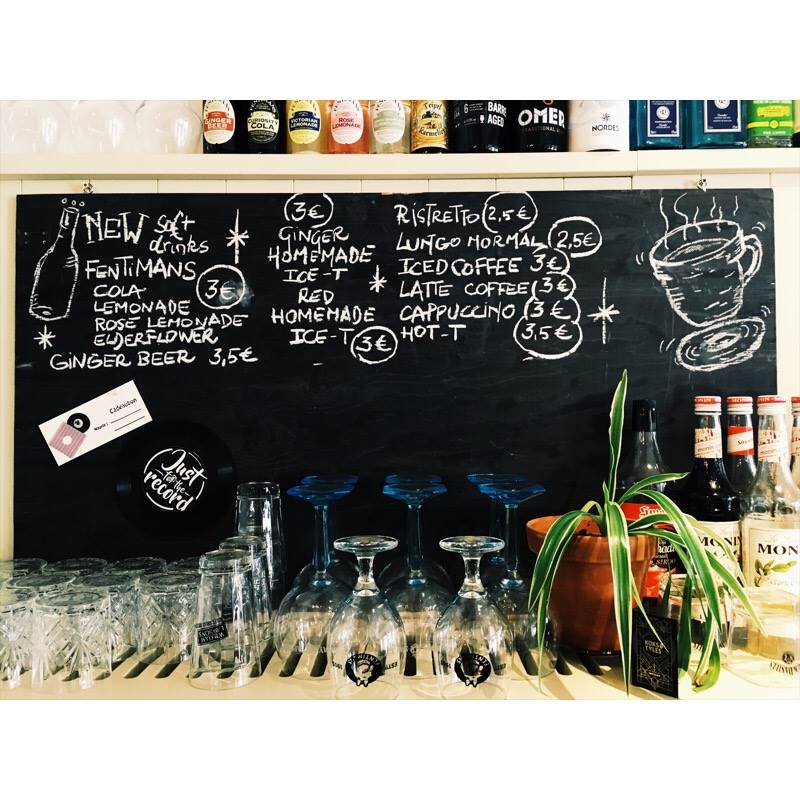 GINGER BEER
CURIOSITY COLA
VICTORIAN LEMONADE
ROSE LEMONADE
Tripel Karmeliet
6
BARREL AGED
OMER
TRADITIONAL
NORDES
NEW soft drinks
FENTIMANS
COLA 3€
LEMONADE
ROSE LEMONADE
ELDERFLOWER
GINGER BEER 3,5€
3€
GINGER
HOMEMADE
ICE-T
RED
HOMEMADE
ICE-T 3€
RISTRETTO 2,5€
LUNGO NORMAL 2,5€
ICED COFFEE 3€
LATTE COFFEE 3€
CAPPUCCINO 3€
HOT-T 3,5€
Cadeaubon
Just
for the
record
MONIN
MONIN